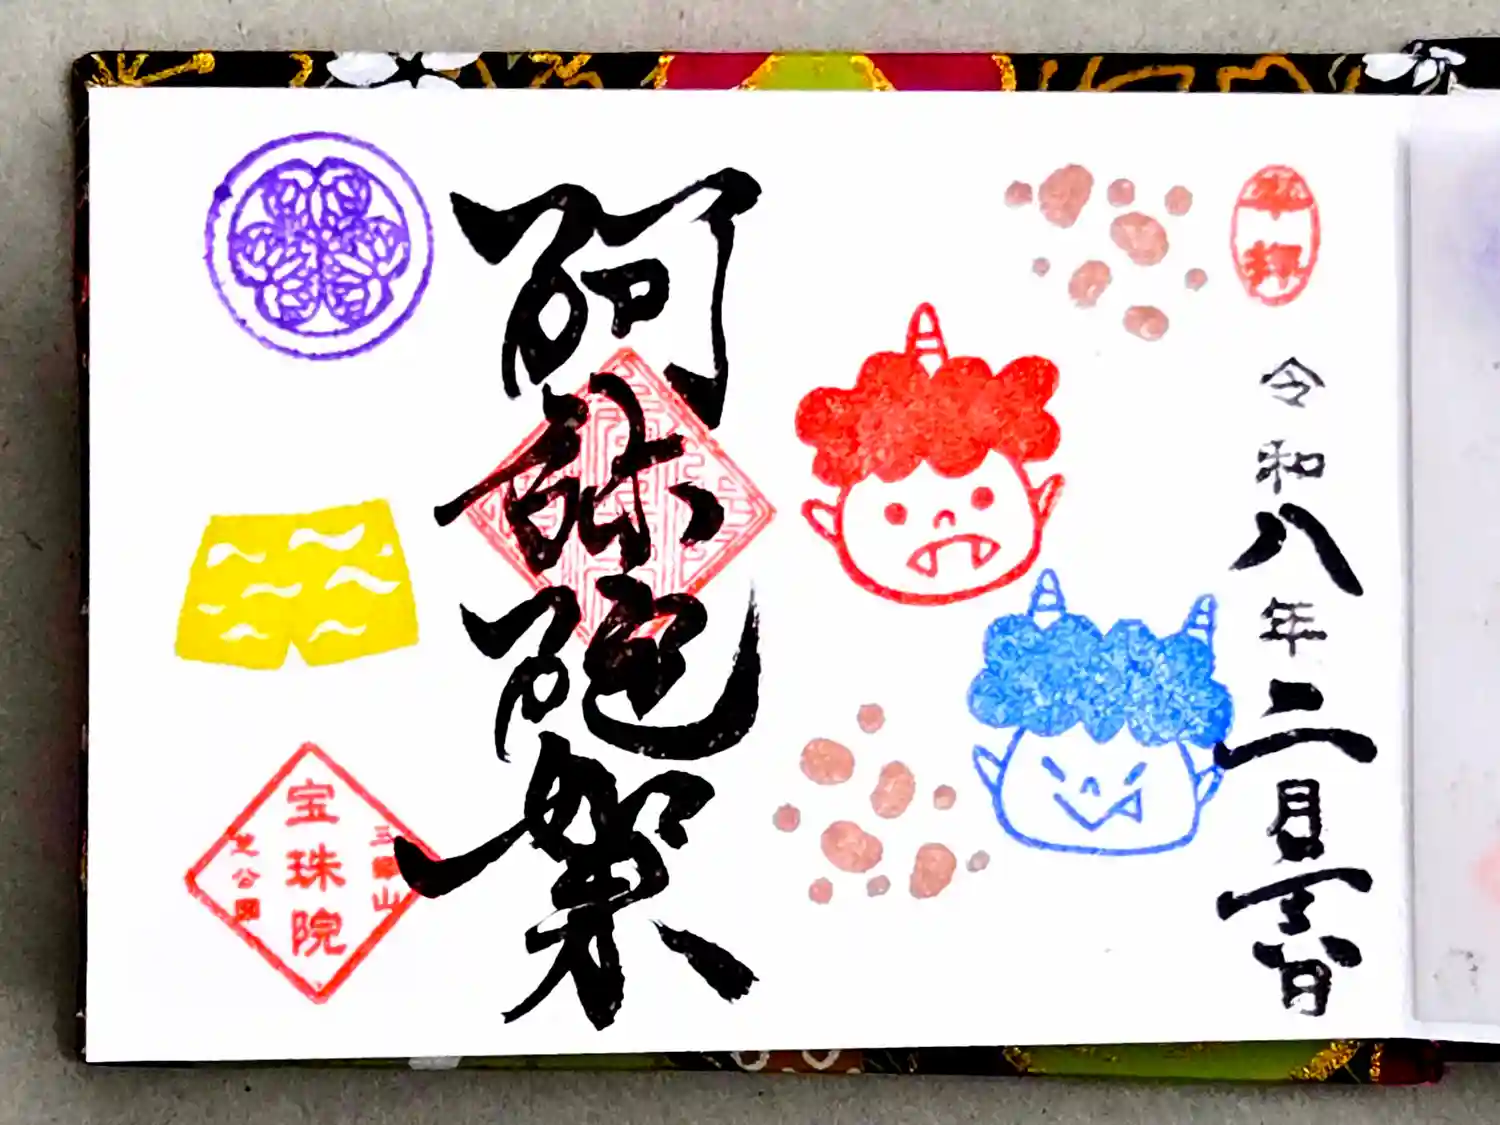 奉拝
令和八年二月日
阿弥陀如来
三縁山
宝珠院
芝公園